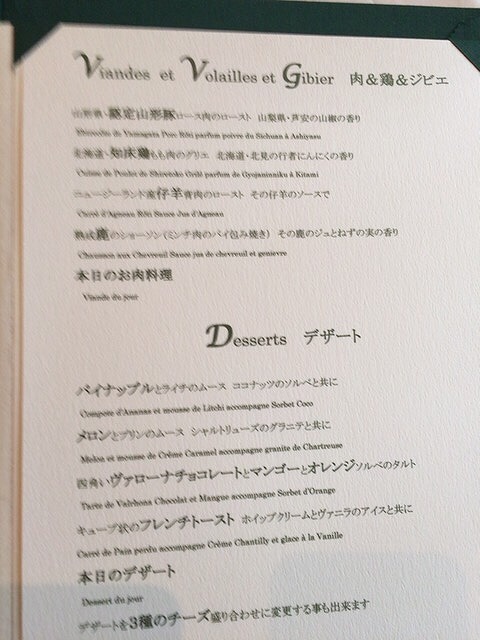 Viandes et Volailles et Gibier 肉&鶏&ジビエ
山形県・認定山形豚ロース肉のロースト 山梨県・芦安の山椒の香り
de Yamagata Porc Rôti parfum poivre du Sichuan à Ashiyasu
北海道・知床鶏もも肉のグリエ 北海道・北見の行者にんにくの香り
Cuisse de Poulet de Shiretoko Grillé parfum de Gyojaninniku à Kitami
ニュージーランド産仔羊背肉のロースト その仔羊のソースで
Carré d'Agneau Rôti Sauce Jus d'Agneau
熟成鹿のショーソン(ミンチ肉のパイ包み焼き) その鹿のジュとねずの実の香り
Chausson aux Chevreuil Sauce jus de chevreuil et genievre
本日のお肉料理
Viande du jour
Desserts デザート
パイナップルとライチのムース ココナッツのソルベと共に
Compote d'Ananas et mousse de Litchi accompagne Sorbet Coco
メロンとプリンのムース シャルトリューズのグラニテと共に
Melon et mousse de Crème Caramel accompagne granite de Chartreuse
四角いヴァローナチョコレートとマンゴーとオレンジソルベのタルト
Tarte de Valrhona Chocolat et Mangue accompagne Sorbet d'Orange
キューブ状のフレンチトースト ホイップクリームとヴァニラのアイスと共に
Carré de Pain perdu accompagne Crème Chantilly et glace à la Vanille
本日のデザート
Dessert du jour
デザートを3種のチーズ盛り合わせに変更する事も出来ます